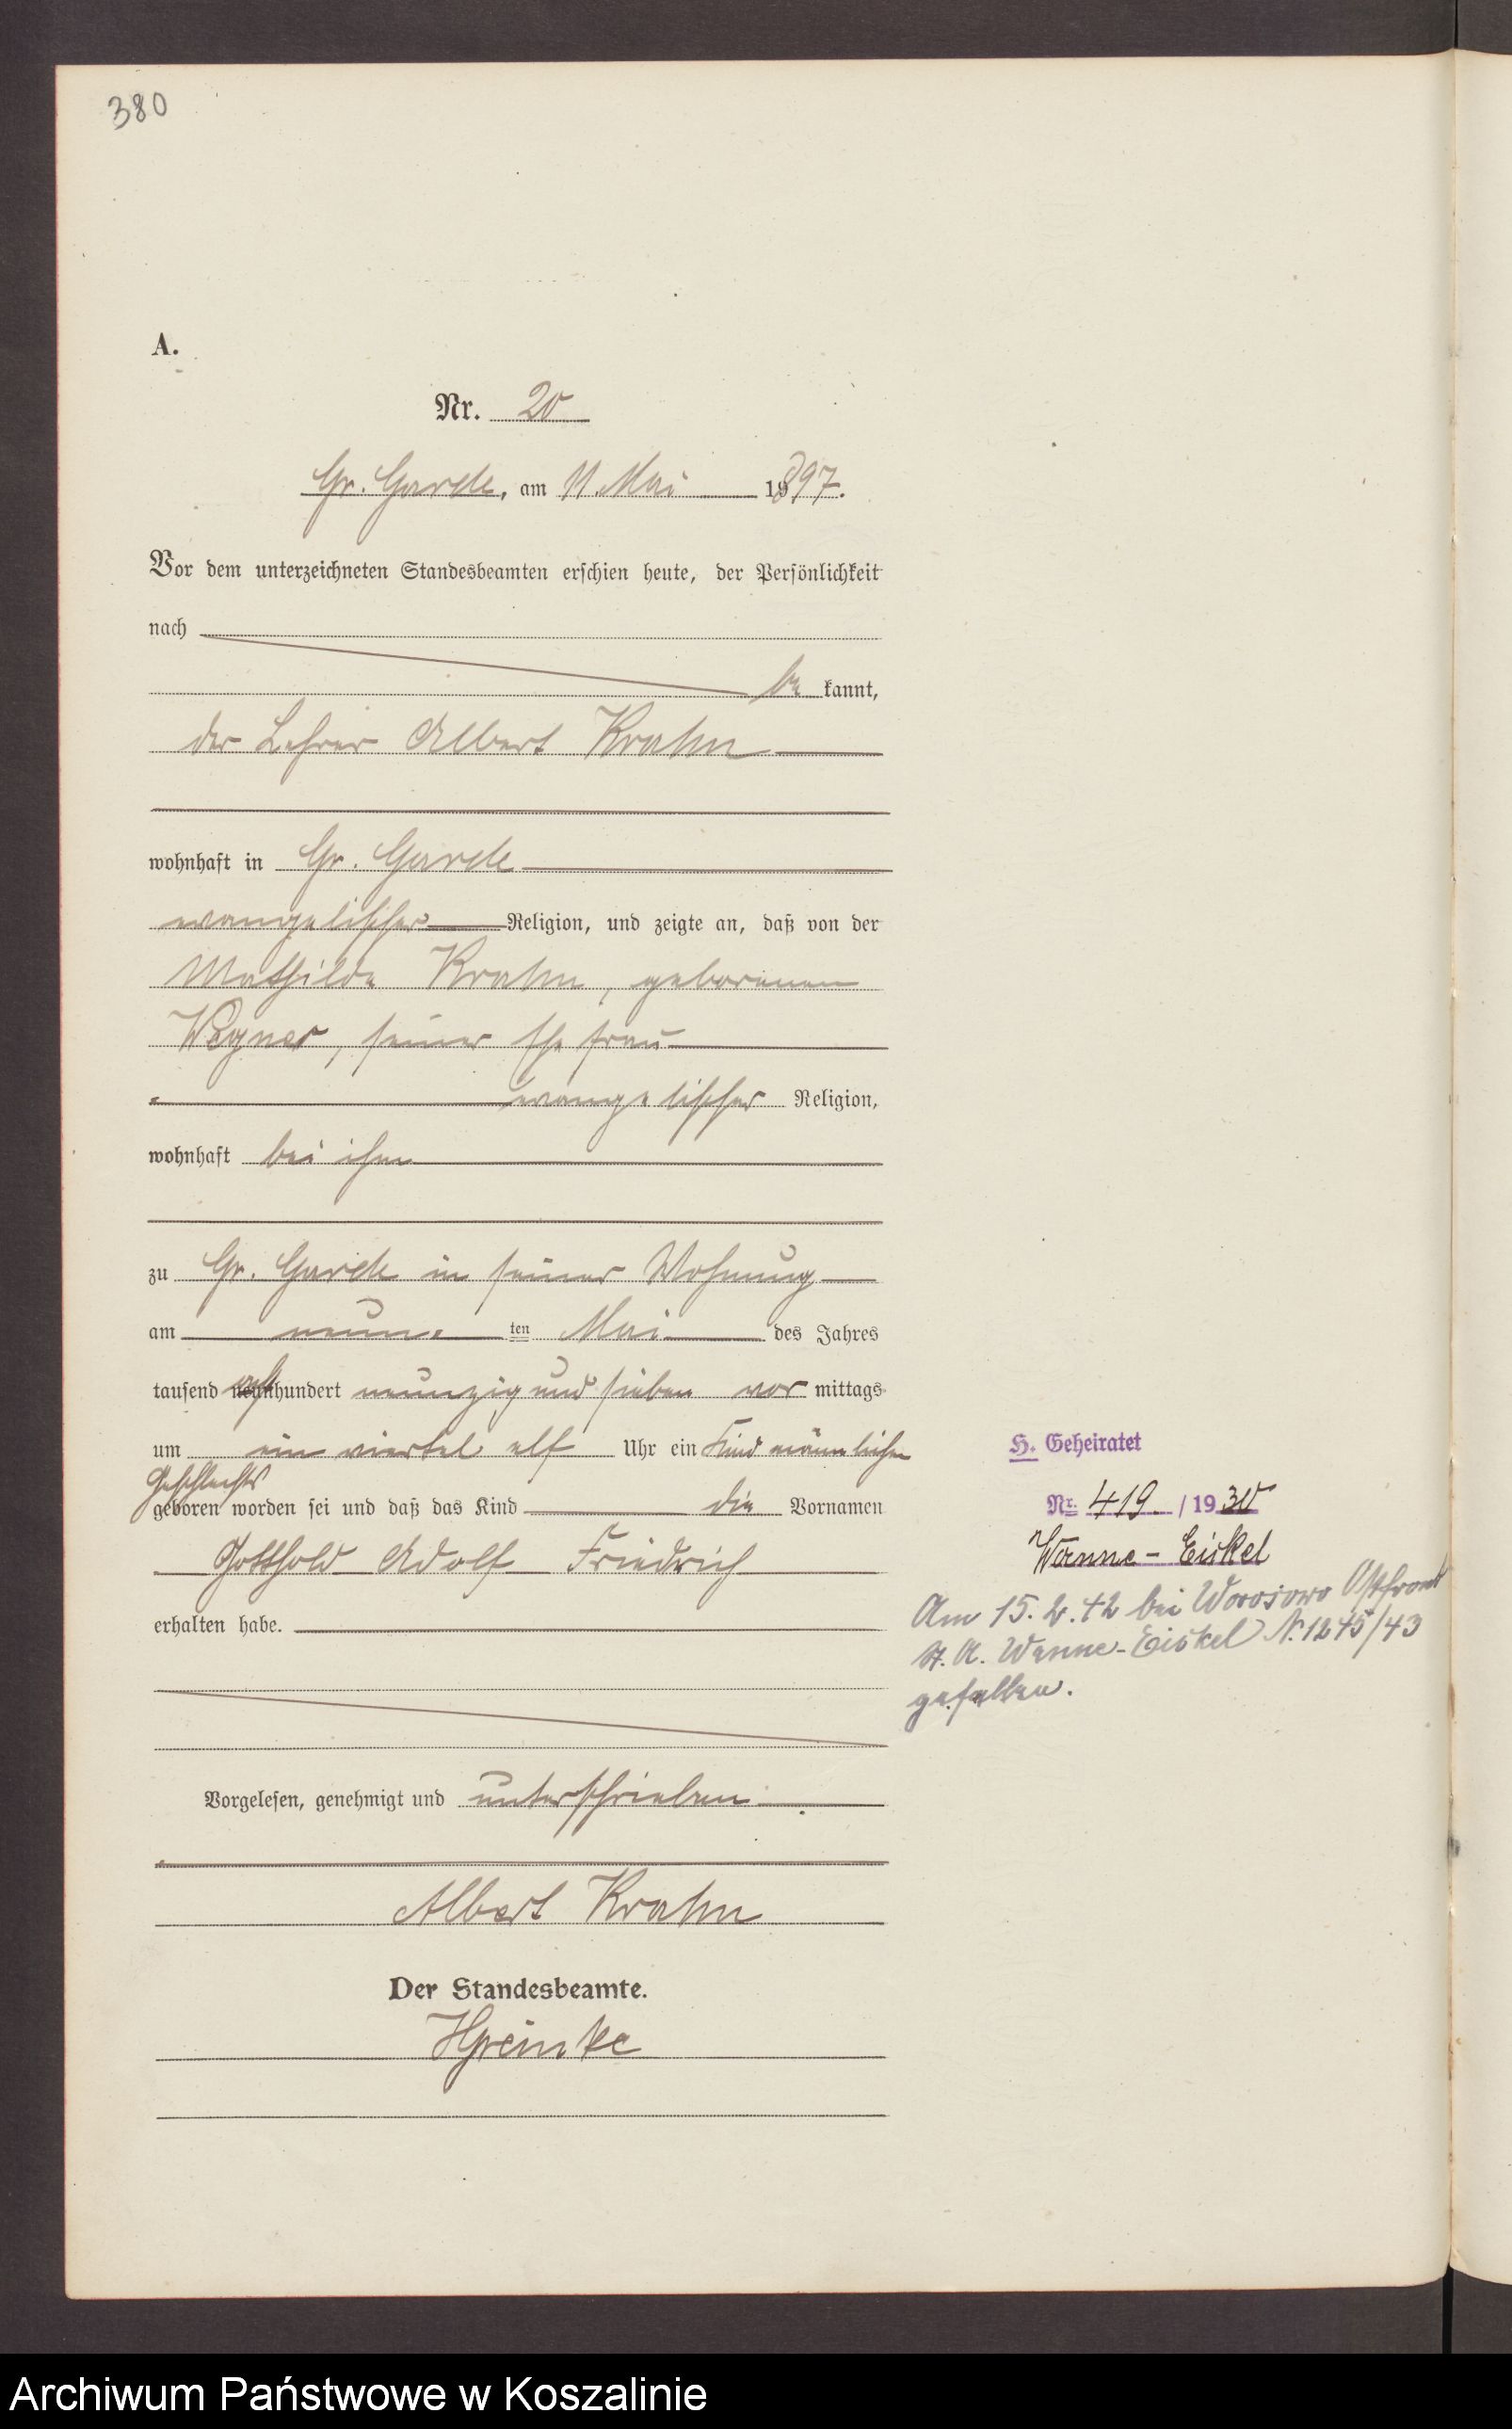 380
A.
Nr. 20
Gr. Garde, am 11. Mai 1897.
Vor dem unterzeichneten Standesbeamten erschien heute, der Persönlichkeit
nach
be kannt,
der Lehrer Albert Krahn
wohnhaft in Gr. Garde
evangelischer Religion, und zeigte an, daß von der
Mathilde Krahn, geborenen
Wegner, seiner Ehefrau
evangelischer Religion,
wohnhaft bei ihm
zu Gr. Garde in seiner Wohnung
am neun ten Mai des Jahres
tausend acht hundert neunzig und sieben vor mittags
um ein viertel elf Uhr ein Kind männlichen
Geschlechts
geboren worden sei und daß das Kind die Vornamen
Gotthold Adolf Friedrich
erhalten habe.
Vorgelesen, genehmigt und unterschrieben
Albert Krahn
Der Standesbeamte.
H. Geheiratet
Nr. 419. / 1930
Wanne-Eickel
Am 15. 2. 42 bei Ostfront
St. A. Wanne-Eickel N. 1245/43
gefallen.
Archiwum Państwowe w Koszalinie